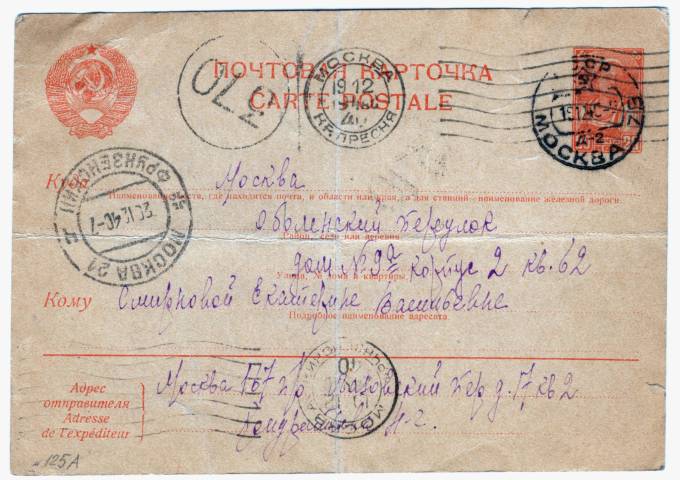 ПОЧТОВАЯ КАРТОЧКА
CARTE POSTALE
ОЛ 2
МОСКВА
19 12
40
КР.ПРЕСНЯ
СССР
МОСКВА
Д-2
ФРУНЗЕНСКИЙ
МОСКВА 21
20.12.40-7
Куда Москва
Наименование места, где находится почта, и области или края, а для станций - наименование железной дороги
Оболенский Переулок
Район, село или деревня
дом № 9а корпус 2 кв. 62
Улица, № дома и квартиры
Кому Смирновой Екатерине Васильевне
Подробное наименование адресата
Адрес
отправителя
Adresse
de l'expéditeur
Москва пер д. 17 кв 2
МОСКВА
125А